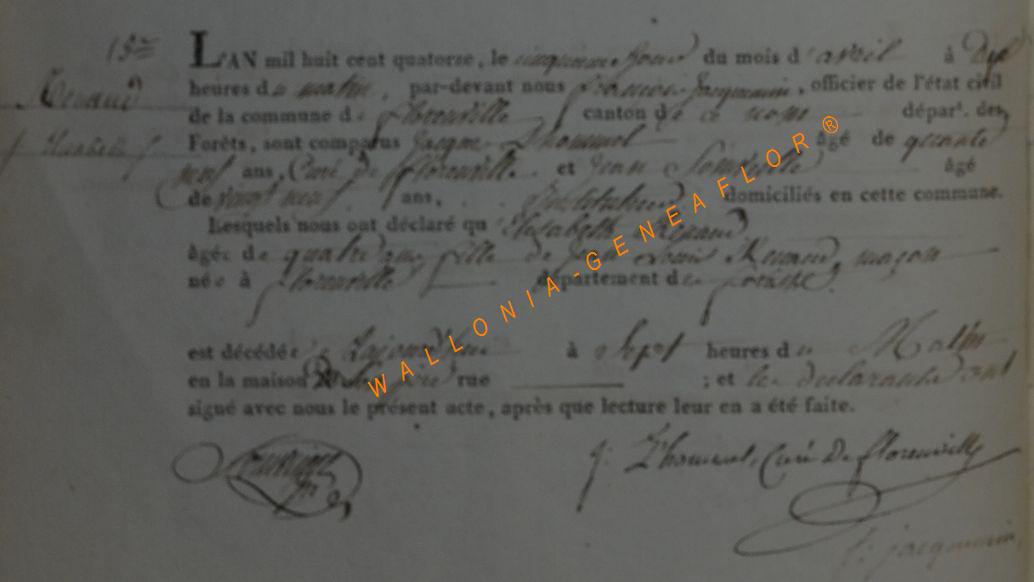 15me L'AN mil huit cent quatorze, le cinquieme jour du mois d'avril à Dix
Renaud heures du matin, par-devant nous françois jacquemin, officier de l'état civil
de la commune de florenville canton de ce nom départ. des
Elisabeth Forêts, sont comparus jacque Thommet âgé de quarante
neuf ans, Curé de florenville et jean âgé
de vingt neuf ans, Instituteur domiciliés en cette commune.
Lesquels nous ont déclaré qu'Elisabeth Renaud
âgée de quatre ans fille de jean Louis Renaud, maçon
née à florenville département des forêts.
est décédée à Sept heures du Matin
en la maison rue ; et les declarants ont
signé avec nous le présent acte, après que lecture leur en a été faite.
j: Thommet, Curé De florenville
f: jacquemin
WALLONIA-GENEAFLOR®